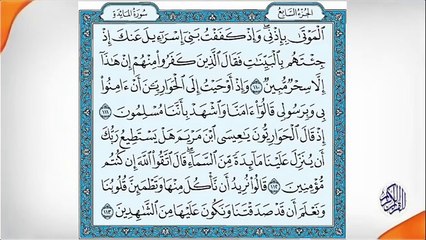 سُورَةُ المَائِدَةِ
الجُزْءُ السَّابِعُ
ٱلْمَوْتَىٰ بِإِذْنِى وَإِذْ كَفَفْتُ بَنِىٓ إِسْرَٰٓءِيلَ عَنكَ إِذْ
جِئْتَهُم بِٱلْبَيِّنَـٰتِ فَقَالَ ٱلَّذِينَ كَفَرُوا۟ مِنْهُمْ إِنْ هَـٰذَآ
إِلَّا سِحْرٌ مُّبِينٌ ١١٠ وَإِذْ أَوْحَيْتُ إِلَى ٱلْحَوَارِيِّـۧنَ أَنْ ءَامِنُوا۟
بِى وَبِرَسُولِى قَالُوٓا۟ ءَامَنَّا وَٱشْهَدْ بِأَنَّنَا مُسْلِمُونَ ١١١
إِذْ قَالَ ٱلْحَوَارِيُّونَ يَـٰعِيسَى ٱبْنَ مَرْيَمَ هَلْ يَسْتَطِيعُ رَبُّكَ
أَن يُنَزِّلَ عَلَيْنَا مَآئِدَةً مِّنَ ٱلسَّمَآءِ قَالَ ٱتَّقُوا۟ ٱللَّهَ إِن كُنتُم
مُّؤْمِنِينَ ١١٢ قَالُوا۟ نُرِيدُ أَن نَّأْكُلَ مِنْهَا وَتَطْمَئِنَّ قُلُوبُنَا
وَنَعْلَمَ أَن قَدْ صَدَقْتَنَا وَنَكُونَ عَلَيْهَا مِنَ ٱلشَّـٰهِدِينَ ١١٣
القرآن الكريم